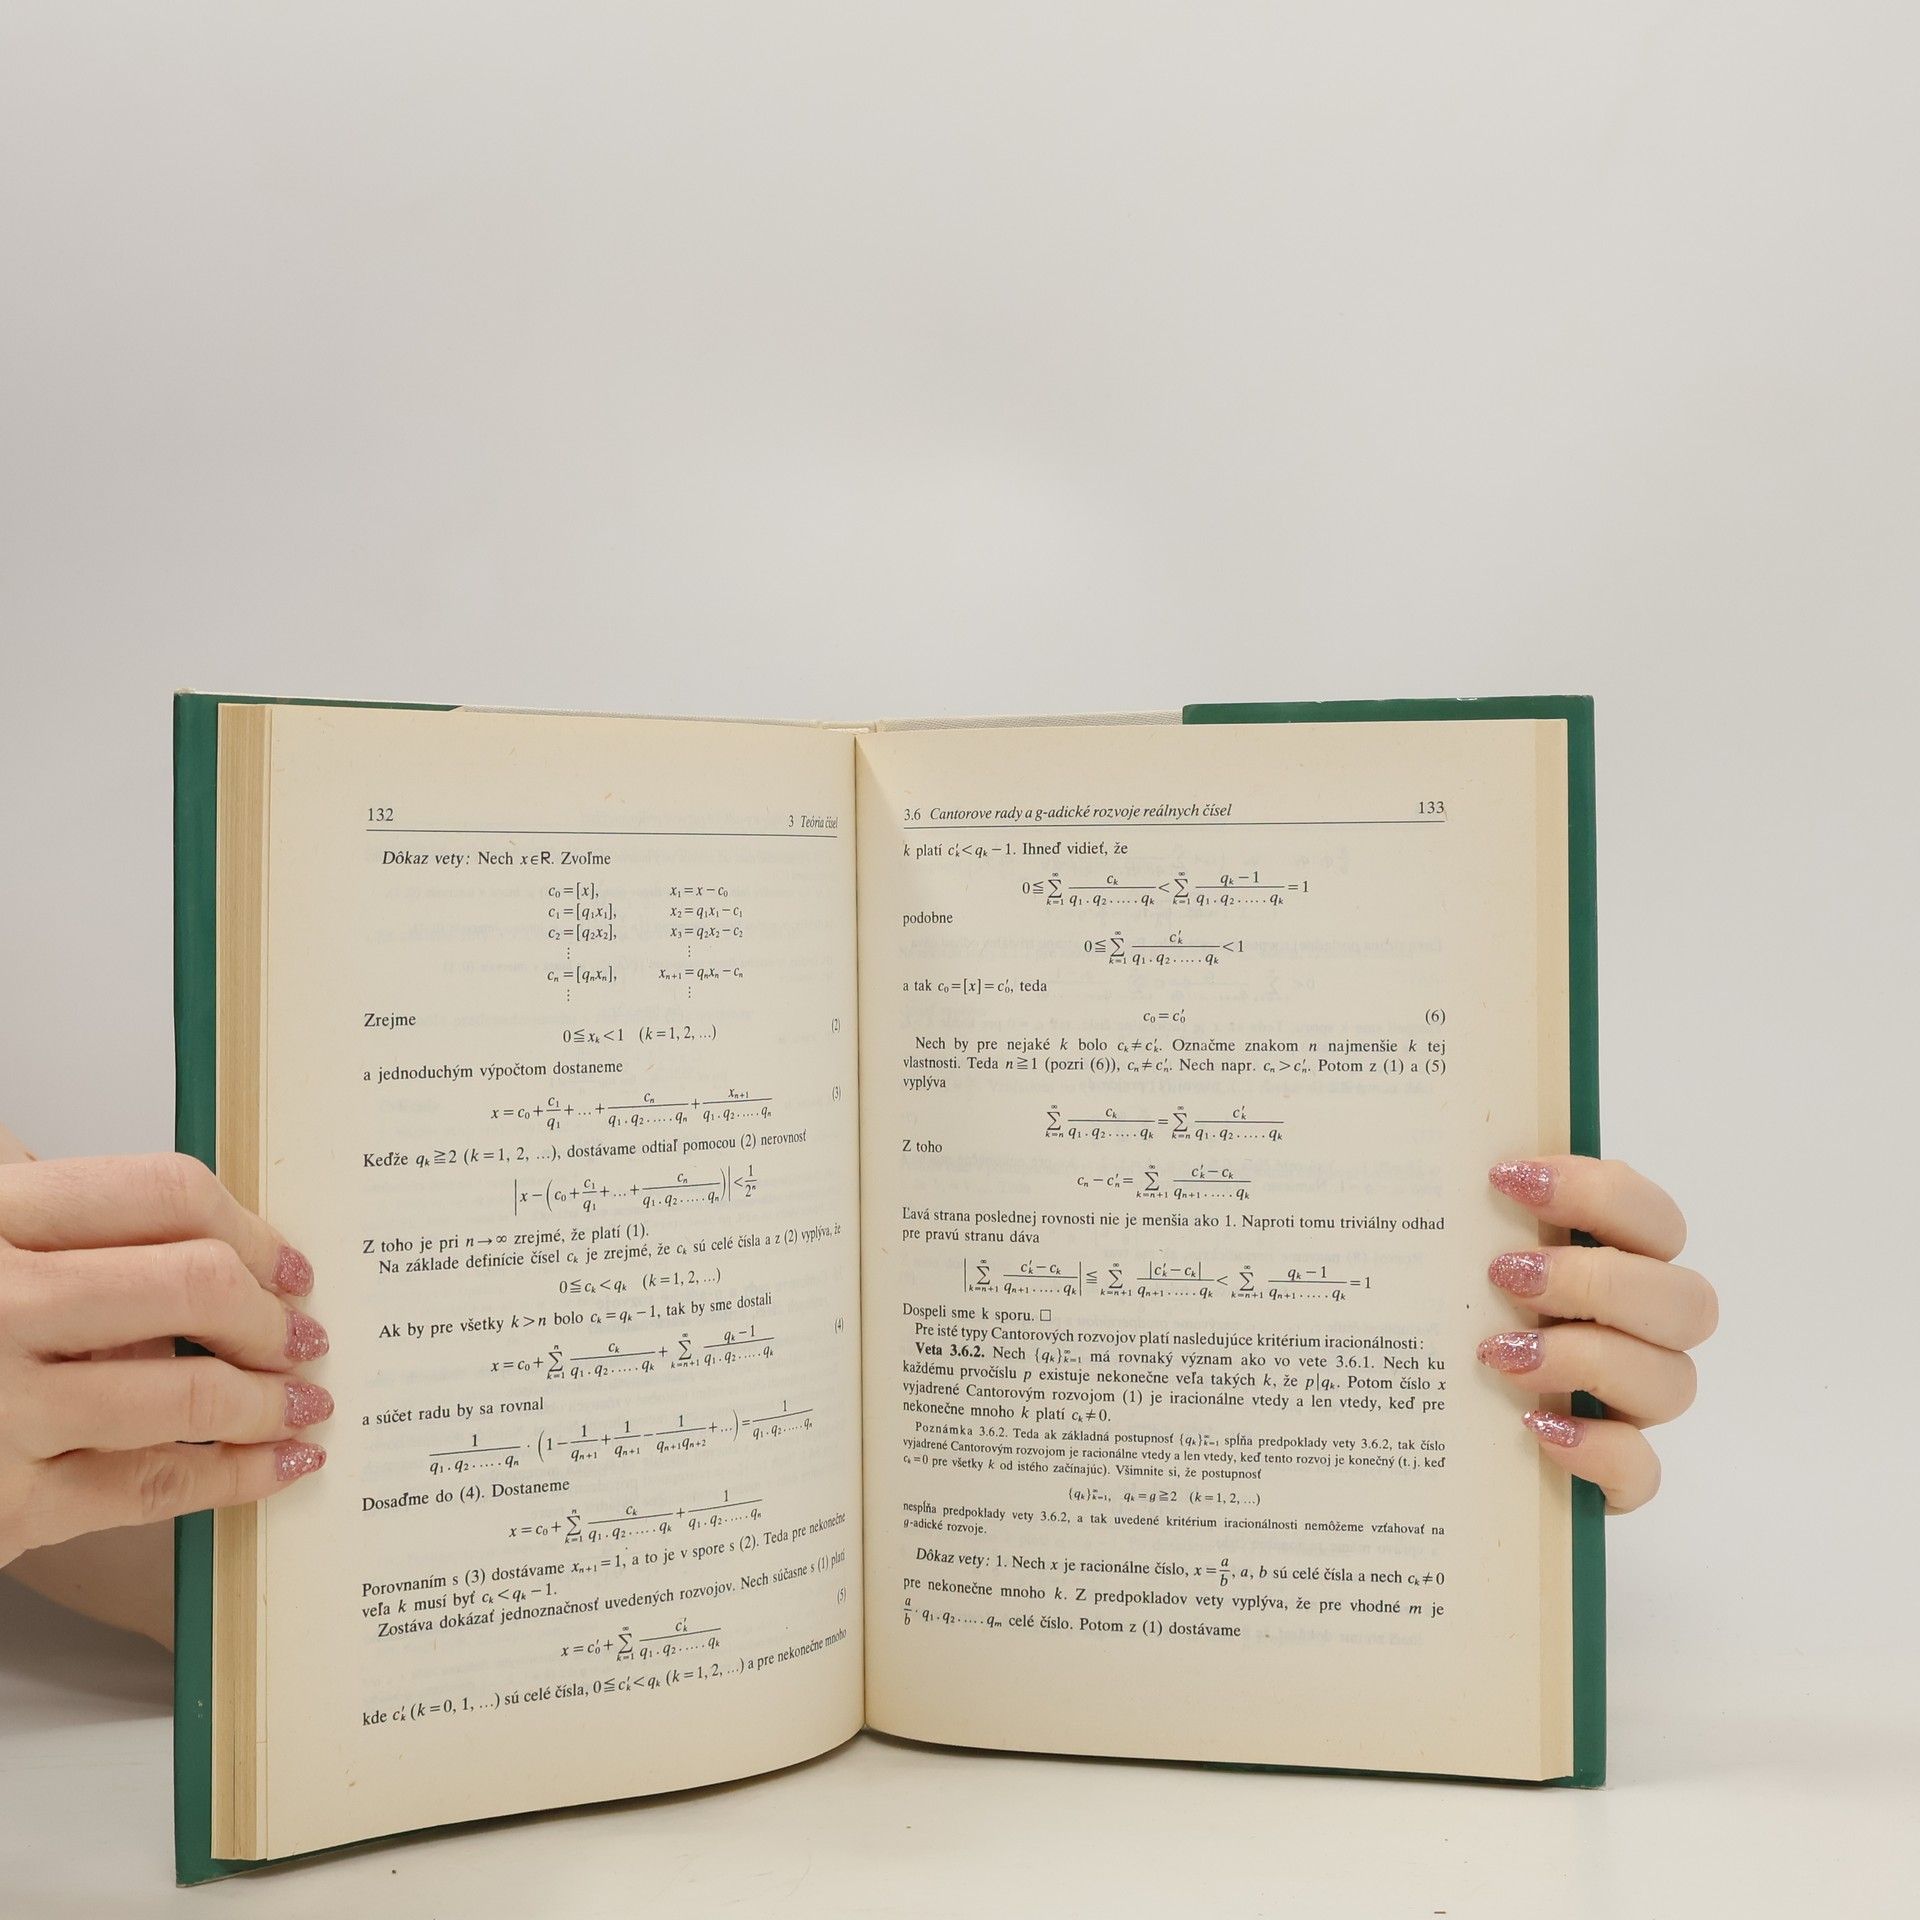 132
3 Teória čísel
Dôkaz vety: Nech x∈R. Zvoľme
c₀=[x], x₁=x−c₀
c₁=[q₁x₁], x₂=q₁x₁−c₁
c₂=[q₂x₂], x₃=q₂x₂−c₂
⋮ ⋮
cₙ=[qₙxₙ], xₙ₊₁=qₙxₙ−cₙ
⋮ ⋮
Zrejme
0≦xₖ<1 (k=1, 2, ...) (2)
a jednoduchým výpočtom dostaneme
x=c₀+c₁/q₁+...+cₙ/(q₁.q₂.....qₙ)+xₙ₊₁/(q₁.q₂.....qₙ) (3)
Keďže qₖ≧2 (k=1, 2, ...), dostávame odtiaľ pomocou (2) nerovnosť
|x−(c₀+c₁/q₁+...+cₙ/(q₁.q₂.....qₙ))|<1/2ⁿ
Z toho je pri n→∞ zrejmé, že platí (1).
Na základe definície čísel cₖ je zrejmé, že cₖ sú celé čísla a z (2) vyplýva, že
0≦cₖ<qₖ (k=1, 2, ...)
Ak by pre všetky k>n bolo cₖ=qₖ−1, tak by sme dostali
x=c₀+∑ₖ₌₁ⁿ cₖ/(q₁.q₂.....qₖ)+∑ₖ₌ₙ₊₁^∞ (qₖ−1)/(q₁.q₂.....qₖ) (4)
a súčet radu by sa rovnal
1/(q₁.q₂.....qₙ) · (1−1/qₙ₊₁+1/qₙ₊₁−1/(qₙ₊₁qₙ₊₂)+...)=1/(q₁.q₂.....qₙ)
Dosaďme do (4). Dostaneme
x=c₀+∑ₖ₌₁ⁿ cₖ/(q₁.q₂.....qₖ)+1/(q₁.q₂.....qₙ)
Porovnaním s (3) dostávame xₙ₊₁=1, a to je v spore s (2). Teda pre nekonečne
veľa k musí byť cₖ<qₖ−1.
Zostáva dokázať jednoznačnosť uvedených rozvojov. Nech súčasne s (1) platí
x=c₀′+∑ₖ₌₁^∞ cₖ′/(q₁.q₂.....qₖ) (5)
kde cₖ′ (k=0, 1, ...) sú celé čísla, 0≦cₖ′<qₖ (k=1, 2, ...) a pre nekonečne mnoho
3.6 Cantorove rady a g-adické rozvoje reálnych čísel 133
k platí cₖ′<qₖ−1. Ihneď vidieť, že
0≦∑ₖ₌₁^∞ cₖ/(q₁.q₂.....qₖ)<∑ₖ₌₁^∞ (qₖ−1)/(q₁.q₂.....qₖ)=1
podobne
0≦∑ₖ₌₁^∞ cₖ′/(q₁.q₂.....qₖ)<1
a tak c₀=[x]=c₀′, teda
c₀=c₀′ (6)
Nech by pre nejaké k bolo cₖ≠cₖ′. Označme znakom n najmenšie k tej
vlastnosti. Teda n≧1 (pozri (6)), cₙ≠cₙ′. Nech napr. cₙ>cₙ′. Potom z (1) a (5)
vyplýva
∑ₖ₌ₙ^∞ cₖ/(q₁.q₂.....qₖ)=∑ₖ₌ₙ^∞ cₖ′/(q₁.q₂.....qₖ)
Z toho
cₙ−cₙ′=∑ₖ₌ₙ₊₁^∞ (cₖ′−cₖ)/(qₙ₊₁.....qₖ)
Ľavá strana poslednej rovnosti nie je menšia ako 1. Naproti tomu triviálny odhad
pre pravú stranu dáva
|∑ₖ₌ₙ₊₁^∞ (cₖ′−cₖ)/(qₙ₊₁.....qₖ)|≦∑ₖ₌ₙ₊₁^∞ |cₖ′−cₖ|/(qₙ₊₁.....qₖ)<∑ₖ₌ₙ₊₁^∞ (qₖ−1)/(qₙ₊₁.....qₖ)=1
Dospeli sme k sporu. □
Pre isté typy Cantorových rozvojov platí nasledujúce kritérium iracionálnosti:
Veta 3.6.2. Nech {qₖ}ₖ₌₁^∞ má rovnaký význam ako vo vete 3.6.1. Nech ku
každému prvočíslu p existuje nekonečne veľa takých k, že p|qₖ. Potom číslo x
vyjadrené Cantorovým rozvojom (1) je iracionálne vtedy a len vtedy, keď pre
nekonečne mnoho k platí cₖ≠0.
Poznámka 3.6.2. Teda ak základná postupnosť {qₖ}ₖ₌₁^∞ spĺňa predpoklady vety 3.6.2, tak číslo
vyjadrené Cantorovým rozvojom je racionálne vtedy a len vtedy, keď tento rozvoj je konečný (t. j. keď
cₖ=0 pre všetky k od istého začínajúc). Všimnite si, že postupnosť
{qₖ}ₖ₌₁^∞, qₖ=g≧2 (k=1, 2, ...)
nespĺňa predpoklady vety 3.6.2, a tak uvedené kritérium iracionálnosti nemôžeme vzťahovať na
g-adické rozvoje.
Dôkaz vety: 1. Nech x je racionálne číslo, x=a/b, a, b sú celé čísla a nech cₖ≠0
pre nekonečne mnoho k. Z predpokladov vety vyplýva, že pre vhodné m je
a/b·q₁.q₂.....qₘ celé číslo. Potom z (1) dostávame